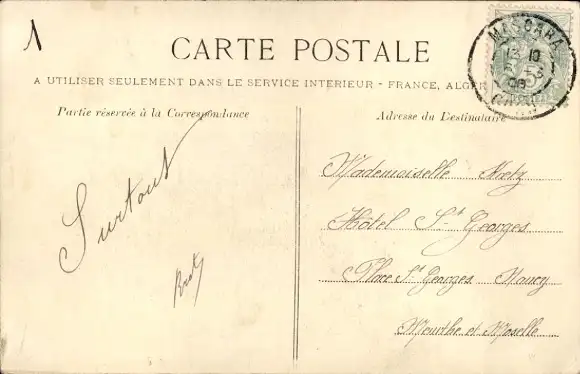 1
CARTE POSTALE
A UTILISER SEULEMENT DANS LE SERVICE INTERIEUR - FRANCE, ALGER
MASCARA
Partie réservée à la Correspondance
Adresse du Destinataire
Surtout
Mademoiselle Metz
Hôtel St Georges
Place St Georges Nancy
Meurthe et Moselle